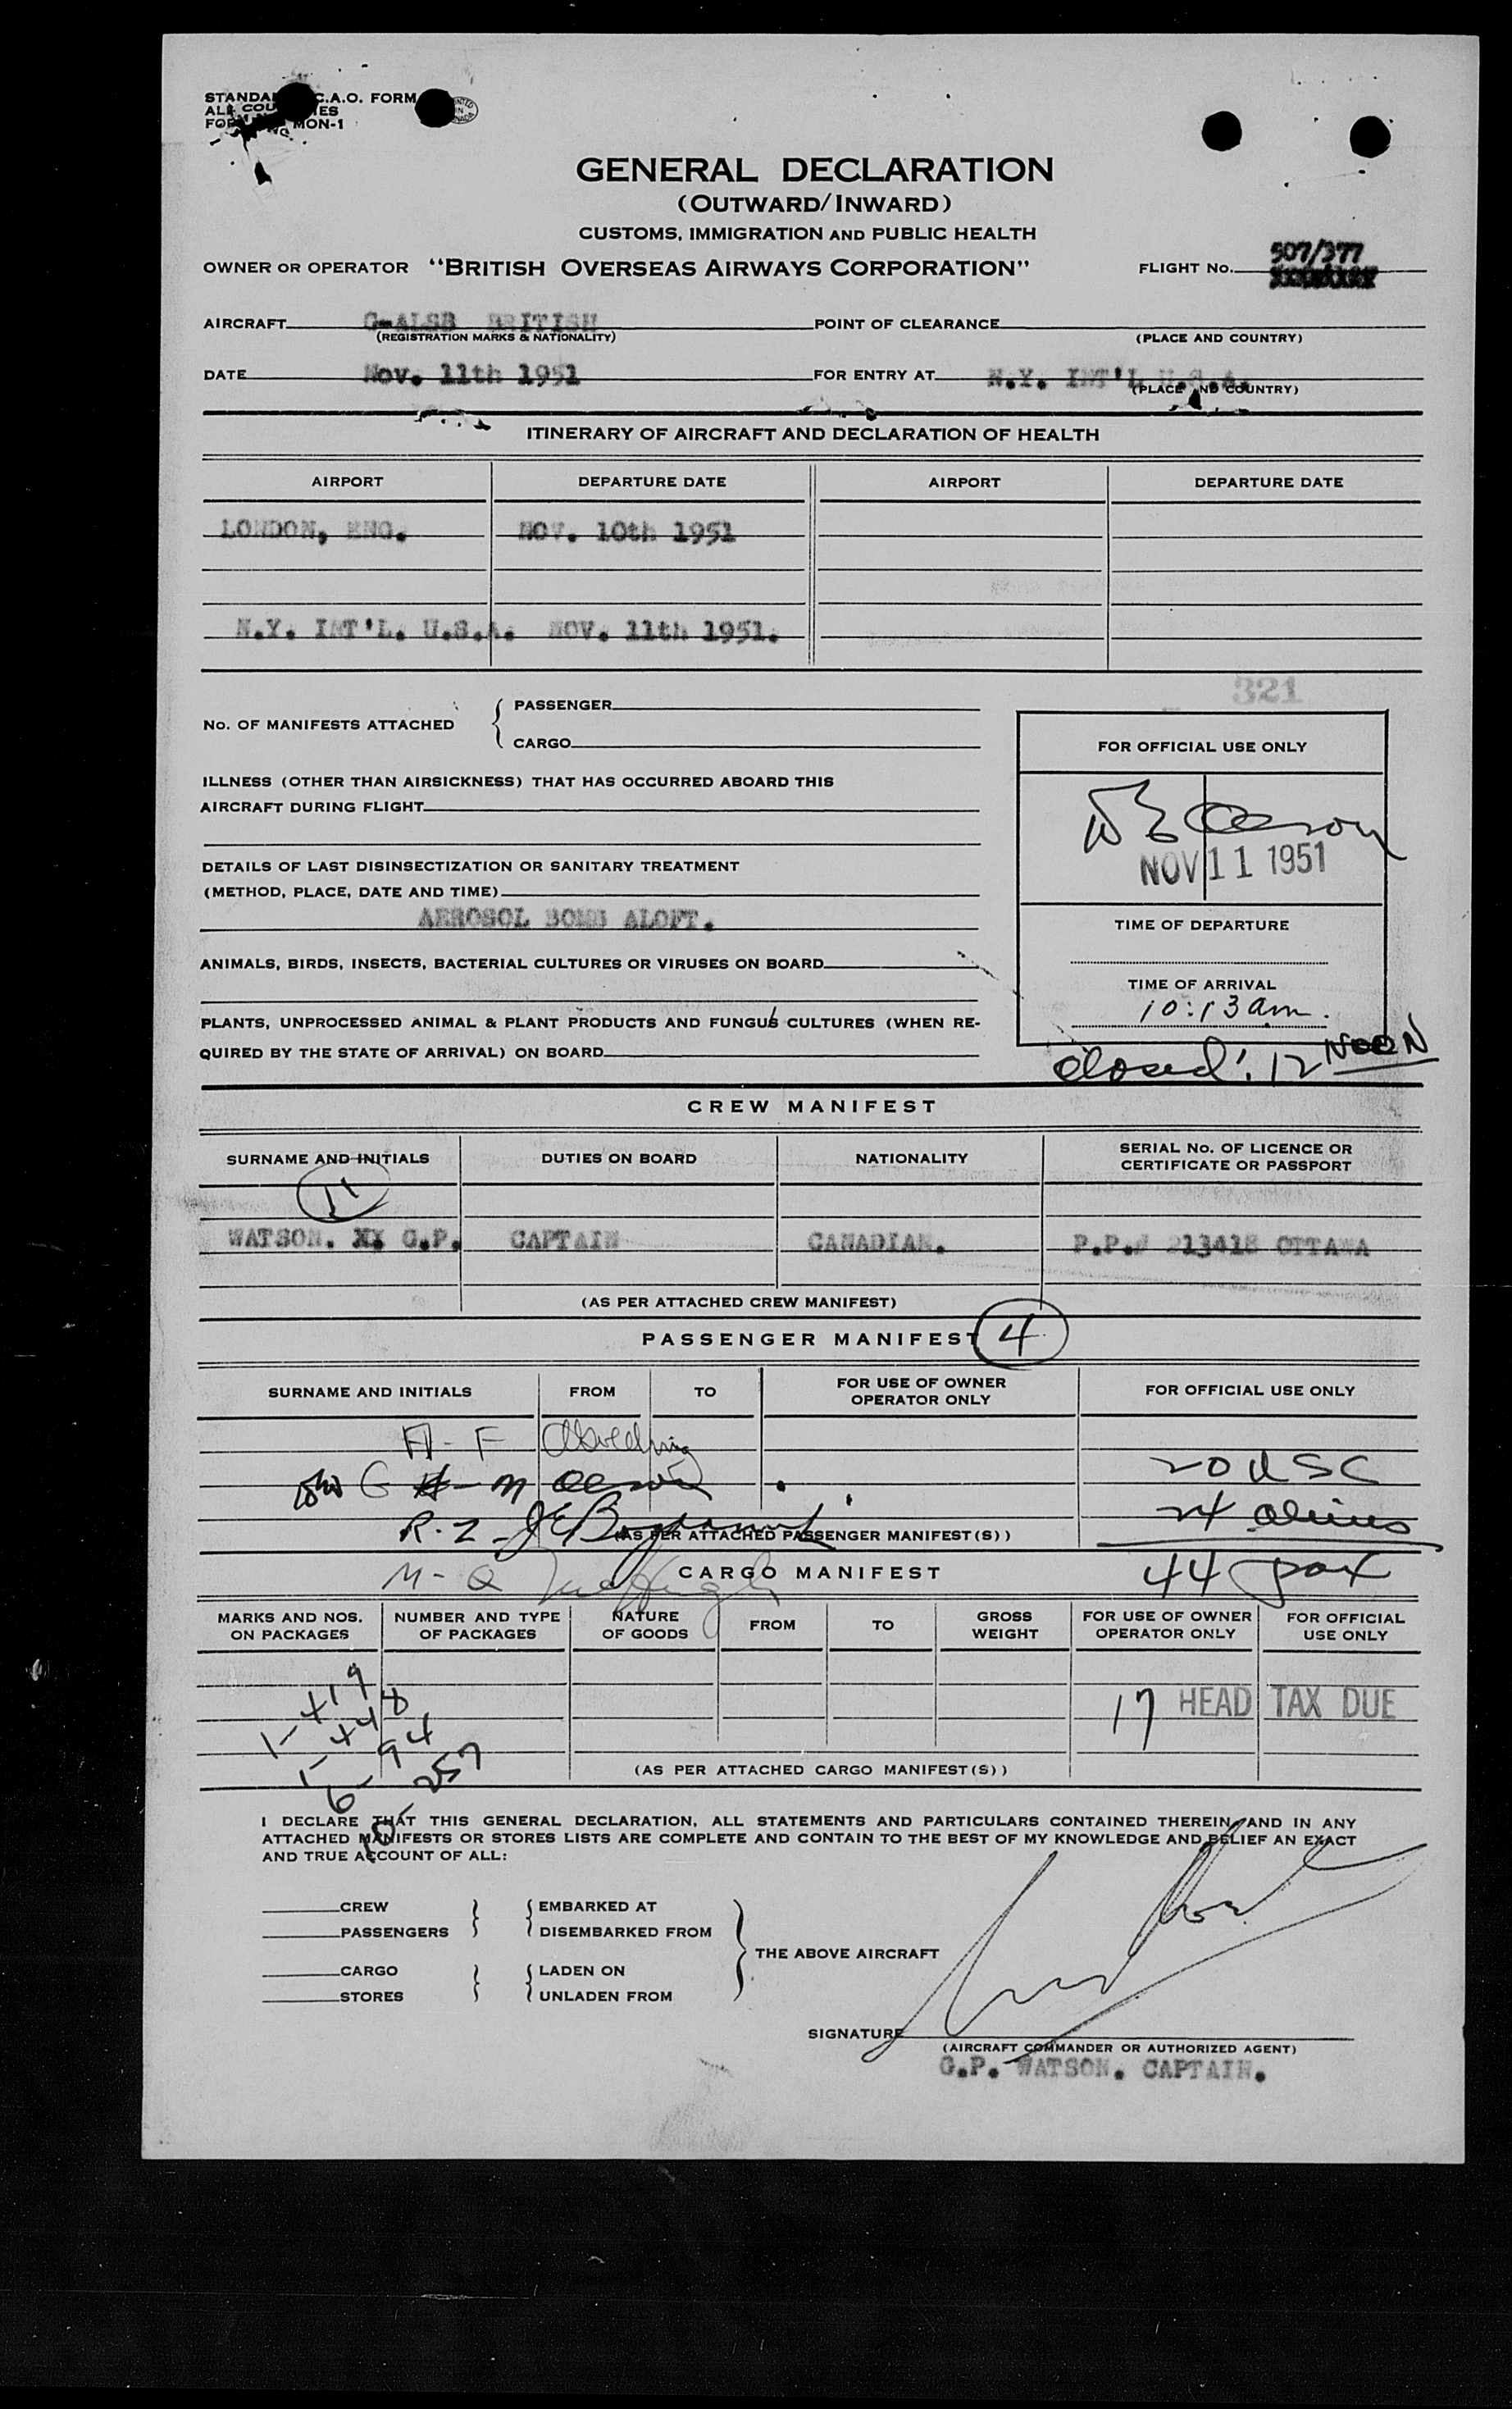 GENERAL DECLARATION
(OUTWARD/INWARD)
CUSTOMS, IMMIGRATION AND PUBLIC HEALTH
OWNER OR OPERATOR "BRITISH OVERSEAS AIRWAYS CORPORATION" FLIGHT No. 507/377
AIRCRAFT G-ALSB BRITISH POINT OF CLEARANCE
(REGISTRATION MARKS & NATIONALITY) (PLACE AND COUNTRY)
DATE Nov. 11th 1951 FOR ENTRY AT N.Y. INT'L U.S.A.
(PLACE AND COUNTRY)
ITINERARY OF AIRCRAFT AND DECLARATION OF HEALTH
AIRPORT DEPARTURE DATE AIRPORT DEPARTURE DATE
LONDON, ENG. NOV. 10th 1951
N.Y. INT'L. U.S.A. NOV. 11th 1951.
321
No. OF MANIFESTS ATTACHED
PASSENGER
CARGO
FOR OFFICIAL USE ONLY
ILLNESS (OTHER THAN AIRSICKNESS) THAT HAS OCCURRED ABOARD THIS
AIRCRAFT DURING FLIGHT
NOV 11 1951
DETAILS OF LAST DISINSECTIZATION OR SANITARY TREATMENT
(METHOD, PLACE, DATE AND TIME)
AEROSOL BOMB ALOFT.
TIME OF DEPARTURE
ANIMALS, BIRDS, INSECTS, BACTERIAL CULTURES OR VIRUSES ON BOARD
TIME OF ARRIVAL
10:13 am.
PLANTS, UNPROCESSED ANIMAL & PLANT PRODUCTS AND FUNGUS CULTURES (WHEN RE-
QUIRED BY THE STATE OF ARRIVAL) ON BOARD
closed: 12 NOON
CREW MANIFEST
SURNAME AND INITIALS DUTIES ON BOARD NATIONALITY SERIAL No. OF LICENCE OR
CERTIFICATE OR PASSPORT
11
WATSON. G.P. CAPTAIN CANADIAN. P.P.# 213418 OTTAWA
(AS PER ATTACHED CREW MANIFEST)
PASSENGER MANIFEST 4
SURNAME AND INITIALS FROM TO FOR USE OF OWNER
OPERATOR ONLY FOR OFFICIAL USE ONLY
A - F
G - M 20 USC
R - Z 24 aliens
(AS PER ATTACHED PASSENGER MANIFEST(S))
M - Q CARGO MANIFEST 44 pax
MARKS AND NOS.
ON PACKAGES NUMBER AND TYPE
OF PACKAGES NATURE
OF GOODS FROM TO GROSS
WEIGHT FOR USE OF OWNER
OPERATOR ONLY FOR OFFICIAL
USE ONLY
1-419
1-448
6-94
10-257
17 HEAD TAX DUE
(AS PER ATTACHED CARGO MANIFEST(S))
I DECLARE THAT THIS GENERAL DECLARATION, ALL STATEMENTS AND PARTICULARS CONTAINED THEREIN, AND IN ANY
ATTACHED MANIFESTS OR STORES LISTS ARE COMPLETE AND CONTAIN TO THE BEST OF MY KNOWLEDGE AND BELIEF AN EXACT
AND TRUE ACCOUNT OF ALL:
CREW EMBARKED AT
PASSENGERS DISEMBARKED FROM
THE ABOVE AIRCRAFT
CARGO LADEN ON
STORES UNLADEN FROM
SIGNATURE
(AIRCRAFT COMMANDER OR AUTHORIZED AGENT)
G.P. WATSON. CAPTAIN.